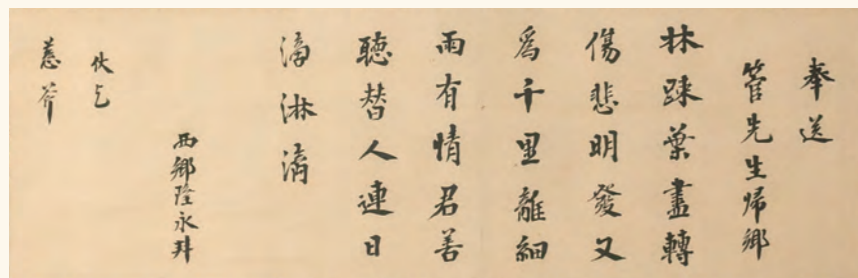 奉送
管先生帰郷
林疎葉盡轉
傷悲明發又
爲千里離細
雨有情君善
聽替人連日
滴淋漓
西郷隆永拜
伏乞
慈斧